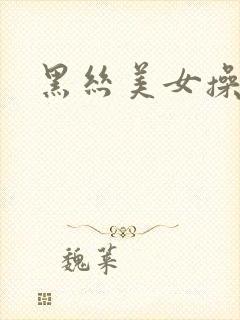 黑丝美女操
魏莱